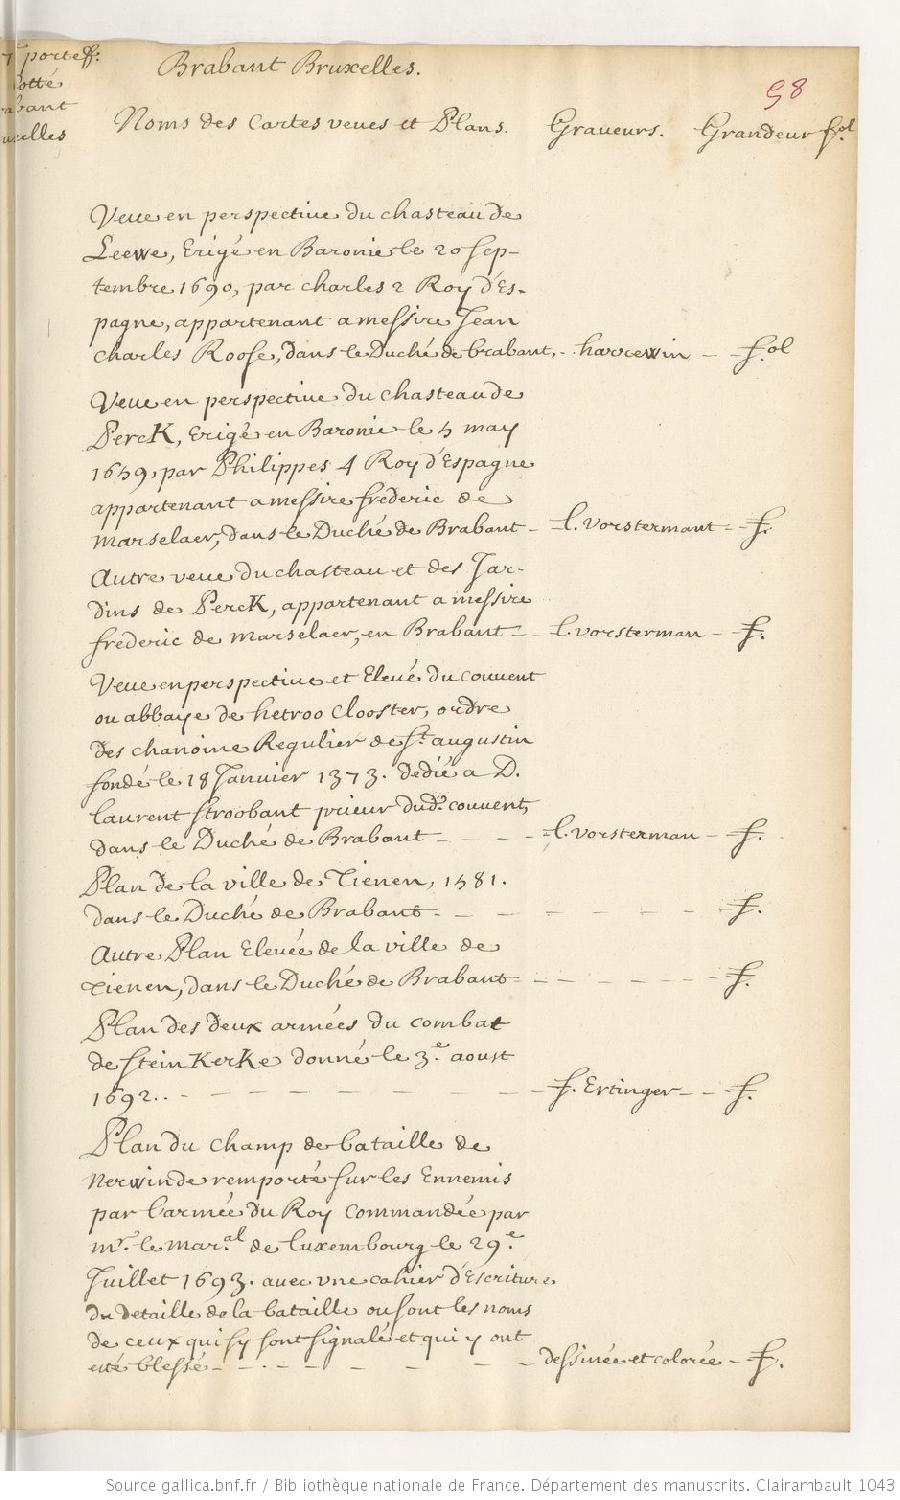 7e porteff.
cotté
Brabant
Bruxelles
Brabant Bruxelles.
98
Noms des Cartes veues et Plans. Graveurs. Grandeur fol.
Veue en perspective du chasteau de
Leewe, Erigé en Baronie le 20 sep-
tembre 1690, par charles 2 Roy d'Es-
pagne, appartenant a messire Jean
Charles Roose, dans le Duché de brabant, - harrewin - - fol
Veue en perspective du chasteau de
Perck, Erigé en Baronie le 5 may
1659, par Philippes 4 Roy d'Espagne
appartenant a messire frederic de
marselaer, dans le Duché de Brabant - l. vorstermant - - f.
Autre veue du chasteau et des Jar-
dins de Perck, appartenant a messire
frederic de marselaer, en Brabant - l. vorsterman - f.
Veue en perspective et Elevé du couvent
ou abbaye de hetroo Clooster, ordre
des chanoine Regulier de St. augustin
fondé le 18 Janvier 1373. dedié a D.
laurent stroobant prieur dud. couvent,
dans le Duché de Brabant - - - l. vorsterman - f.
Plan de la ville de Tienen, 1581.
dans le Duché de Brabant - - - - - - f.
Autre Plan Elevée de la ville de
Tienen, dans le Duché de Brabant - - - - - - f.
Plan des deux armées du combat
de steinKerKe donné le 3e. aoust
1692.. - - - - - - - f. Ertinger - - f.
Plan du champ de bataille de
Nerwinde remporté sur les Ennemis
par l'armée du Roy Commandée par
mr. le maral. de luxembourg le 29e.
Juillet 1693. avec une cahier d'Escriture
du detaille de la bataille ou sont les noms
de ceux qui sy sont signalé et qui y ont
eté blessé - - - - - - - dessinée et colorée - f.
Source gallica.bnf.fr / Bibliothèque nationale de France. Département des manuscrits. Clairambault 1043